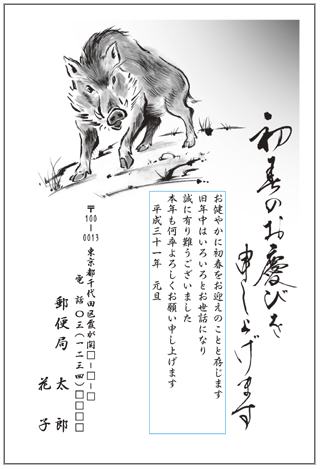 初春のお慶びを
申し上げます
お健やかに初春をお迎えのことと存じます
旧年中はいろいろとお世話になり
誠に有り難うございました
本年も何卒よろしくお願い申し上げます
平成三十一年　元旦
〒100-0013
東京都千代田区霞が関□-□-□
電話〇三(一二三四)□□□□
郵便局　太郎
花子